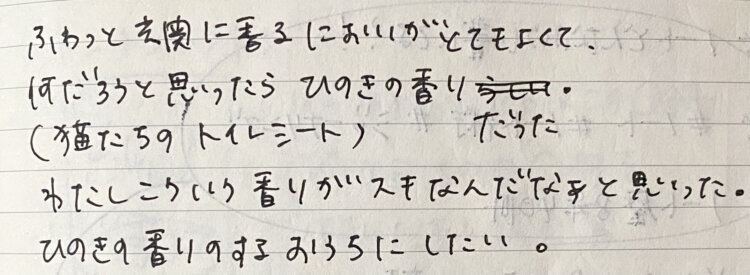 ふわっと玄関に香るにおいがとてもよくて、
何だろうと思ったら ひのきの香り
だった。
(猫たちのトイレシート)
わたしこういう香りがスキなんだなあと思った。
ひのきの香りのするおうちにしたい。